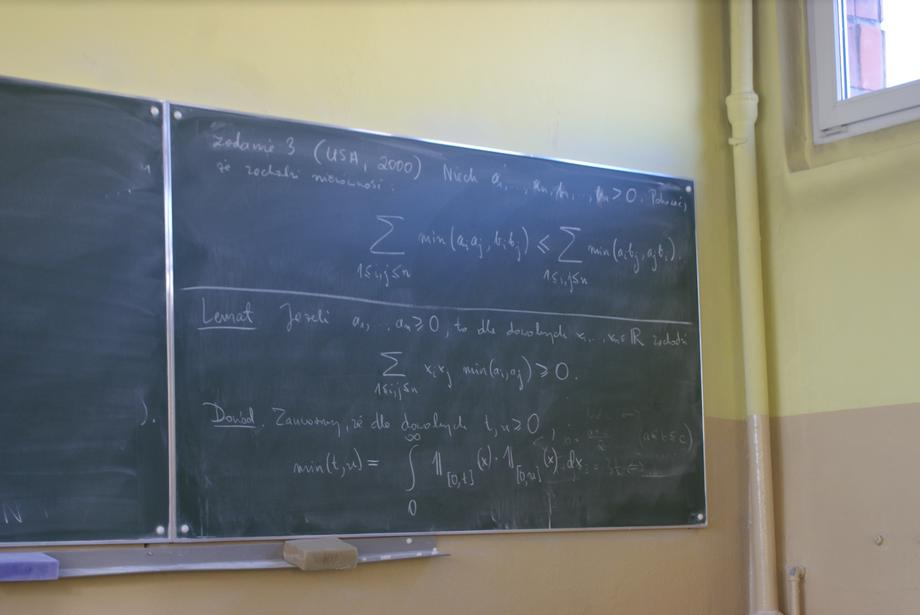 Zadanie 3 (USA, 2000) Niech a₁, ..., aₙ, b₁, ..., bₙ > 0. Pokazać,
że zachodzi nierówność:
∑_{1≤i,j≤n} min(aᵢaⱼ, bᵢbⱼ) ≤ ∑_{1≤i,j≤n} min(aᵢbⱼ, aⱼbᵢ).
Lemat Jeżeli a₁, ..., aₙ ≥ 0, to dla dowolnych x₁, ..., xₙ ∈ ℝ zachodzi
∑_{1≤i,j≤n} xᵢxⱼ min(aᵢ, aⱼ) ≥ 0.
Dowód. Zauważmy, że dla dowolnych t, u ≥ 0
min(t, u) = ∫₀^∞ 𝟙_{[0,t]}(x) · 𝟙_{[0,u]}(x) dx
).
N